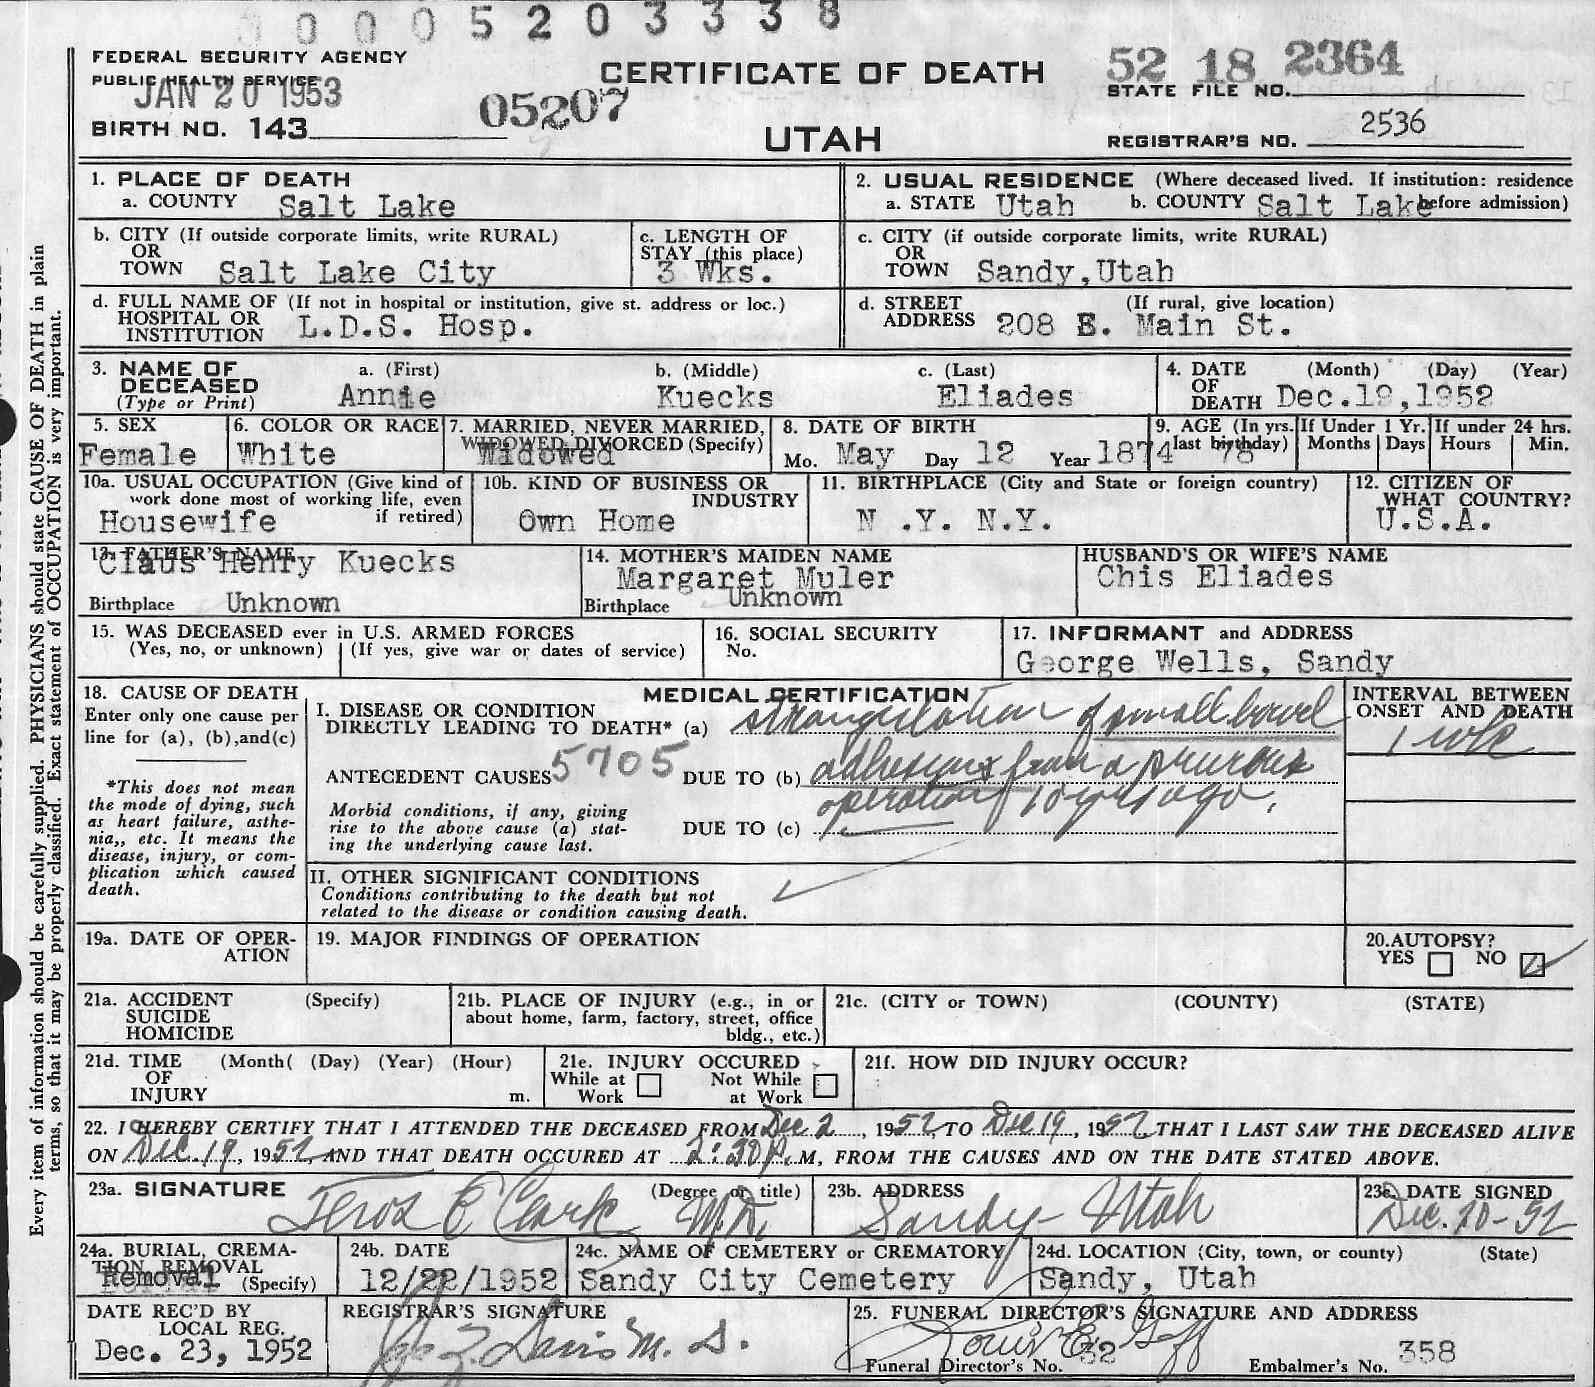 0 0 0 0 5 2 0 3 3 3 8
FEDERAL SECURITY AGENCY
PUBLIC HEALTH SERVICE
JAN 20 1953
BIRTH NO. 143
05207
CERTIFICATE OF DEATH
UTAH
52 18 2364
STATE FILE NO.
REGISTRAR'S NO. 2536
1. PLACE OF DEATH
a. COUNTY Salt Lake
2. USUAL RESIDENCE (Where deceased lived. If institution: residence before admission)
a. STATE Utah b. COUNTY Salt Lake
b. CITY (If outside corporate limits, write RURAL)
OR
TOWN Salt Lake City
c. LENGTH OF
STAY (this place)
3 Wks.
c. CITY (if outside corporate limits, write RURAL)
OR
TOWN Sandy,Utah
d. FULL NAME OF (If not in hospital or institution, give st. address or loc.)
HOSPITAL OR
INSTITUTION L.D.S. Hosp.
d. STREET (If rural, give location)
ADDRESS 208 E. Main St.
3. NAME OF
DECEASED
(Type or Print)
a. (First) b. (Middle) c. (Last)
Annie Kuecks Eliades
4. DATE (Month) (Day) (Year)
OF
DEATH Dec.19,1952
5. SEX
Female
6. COLOR OR RACE
White
7. MARRIED, NEVER MARRIED,
WIDOWED, DIVORCED (Specify)
Widowed
8. DATE OF BIRTH
Mo. May Day 12 Year 1874
9. AGE (In yrs.
last birthday)
78
If Under 1 Yr.
Months Days
If under 24 hrs.
Hours Min.
10a. USUAL OCCUPATION (Give kind of
work done most of working life, even
if retired)
Housewife
10b. KIND OF BUSINESS OR
INDUSTRY
Own Home
11. BIRTHPLACE (City and State or foreign country)
N .Y. N.Y.
12. CITIZEN OF
WHAT COUNTRY?
U.S.A.
13. FATHER'S NAME
Claus Henry Kuecks
Birthplace Unknown
14. MOTHER'S MAIDEN NAME
Margaret Muler
Birthplace Unknown
HUSBAND'S OR WIFE'S NAME
Chis Eliades
15. WAS DECEASED ever in U.S. ARMED FORCES
(Yes, no, or unknown) (If yes, give war or dates of service)
16. SOCIAL SECURITY
No.
17. INFORMANT and ADDRESS
George Wells, Sandy
18. CAUSE OF DEATH
Enter only one cause per
line for (a), (b),and(c)
*This does not mean
the mode of dying, such
as heart failure, asthe-
nia,, etc. It means the
disease, injury, or com-
plication which caused
death.
MEDICAL CERTIFICATION
I. DISEASE OR CONDITION
DIRECTLY LEADING TO DEATH* (a) strangulation of small bowel
ANTECEDENT CAUSES 5705 DUE TO (b) adhesions from a previous
operation 10 yrs ago.
Morbid conditions, if any, giving
rise to the above cause (a) stat-
ing the underlying cause last.
DUE TO (c)
INTERVAL BETWEEN
ONSET AND DEATH
1 wk
II. OTHER SIGNIFICANT CONDITIONS
Conditions contributing to the death but not
related to the disease or condition causing death.
19a. DATE OF OPER-
ATION
19. MAJOR FINDINGS OF OPERATION
20.AUTOPSY?
YES NO
21a. ACCIDENT (Specify)
SUICIDE
HOMICIDE
21b. PLACE OF INJURY (e.g., in or
about home, farm, factory, street, office
bldg., etc.)
21c. (CITY or TOWN) (COUNTY) (STATE)
21d. TIME (Month( (Day) (Year) (Hour)
OF
INJURY m.
21e. INJURY OCCURED
While at Work
Not While at Work
21f. HOW DID INJURY OCCUR?
22. I HEREBY CERTIFY THAT I ATTENDED THE DECEASED FROM Dec 2, 1952, TO Dec 19, 1952, THAT I LAST SAW THE DECEASED ALIVE
ON Dec. 19, 1952, AND THAT DEATH OCCURED AT 2:30 P.M, FROM THE CAUSES AND ON THE DATE STATED ABOVE.
23a. SIGNATURE (Degree or title)
Clark M.D.
23b. ADDRESS
Sandy - Utah
23c. DATE SIGNED
Dec. 20-52
24a. BURIAL, CREMA-
TION REMOVAL
(Specify)
Removal
24b. DATE
12/22/1952
24c. NAME OF CEMETERY OR CREMATORY
Sandy City Cemetery
24d. LOCATION (City, town, or county) (State)
Sandy, Utah
DATE REC'D BY
LOCAL REG.
Dec. 23, 1952
REGISTRAR'S SIGNATURE
Davis M. D.
25. FUNERAL DIRECTOR'S SIGNATURE AND ADDRESS
Louis E. Goff
Funeral Director's No. 32 Embalmer's No. 358
Every item of information should be carefully supplied. PHYSICIANS should state CAUSE OF DEATH in plain
terms, so that it may be properly classified. Exact statement of OCCUPATION is very important.